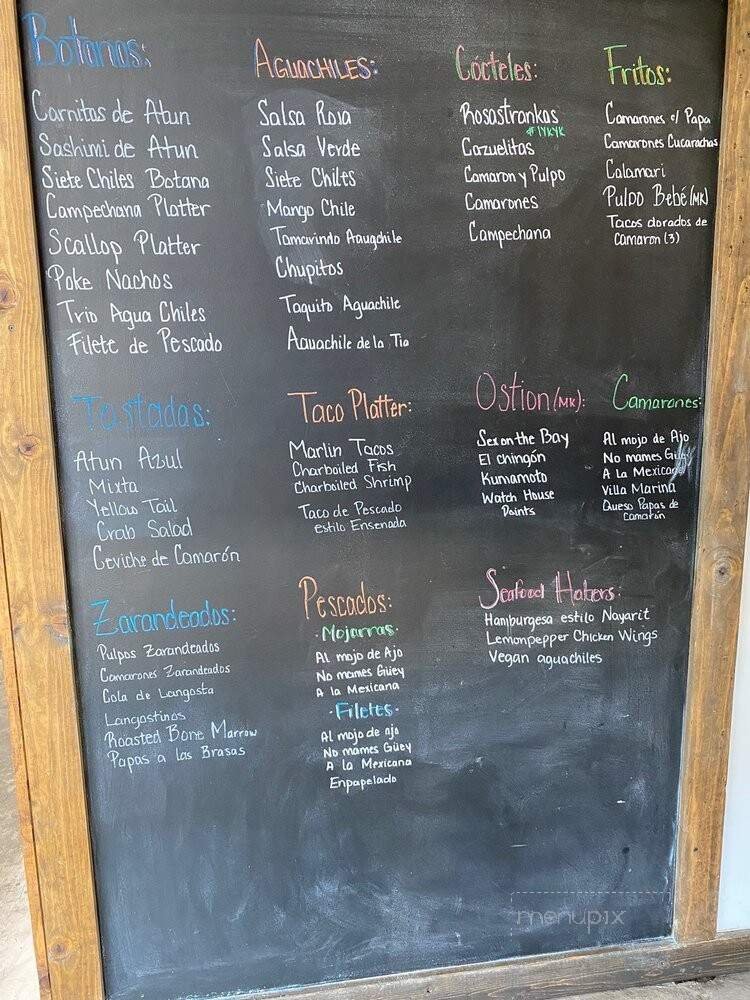 Botanas:
Carnitas de Atun
Sashimi de Atun
Siete Chiles Botana
Campechana Platter
Scallop Platter
Poke Nachos
Trio Agua Chiles
Filete de Pescado
AGUACHILES:
Salsa Roja
Salsa Verde
Siete Chiles
Mango Chile
Tamarindo Aaugchile
Chupitos
Taquito Aguachile
Aguachile de la Tia
Cócteles:
Rosastrankas
#IYKYK
Cazuelitas
Camaron y Pulpo
Camarones
Campechana
Fritos:
Camarones c/ Papa
Camarones Cucarachas
Calamari
Pulpo Bebé (MK)
Tacos dorados de
Camaron (3)
Tostadas:
Atun Azul
Mixta
Yellow Tail
Crab Salad
Ceviche de Camarón
Taco Platter:
Marlin Tacos
Charboiled Fish
Charboiled Shrimp
Taco de Pescado
estilo Ensenada
Ostion (MK):
Sex on the Bay
El chingón
Kumamoto
Watch House
Points
Camarones:
Al mojo de Ajo
No mames Güey
A la Mexicana
Villa Marina
Queso Papas de
Camarón
Zarandeados:
Pulpos Zarandeados
Camarones Zarandeados
Cola de Langosta
Langostinos
Roasted Bone Marrow
Papas a las Brasas
Pescados:
·Mojarras·
Al mojo de Ajo
No mames Güey
A la Mexicana
·Filetes·
Al mojo de ajo
No mames Güey
A la Mexicana
Enpapelado
Seafood Haters:
Hamburgesa estilo Nayarit
Lemonpepper Chicken Wings
Vegan aguachiles
menupix